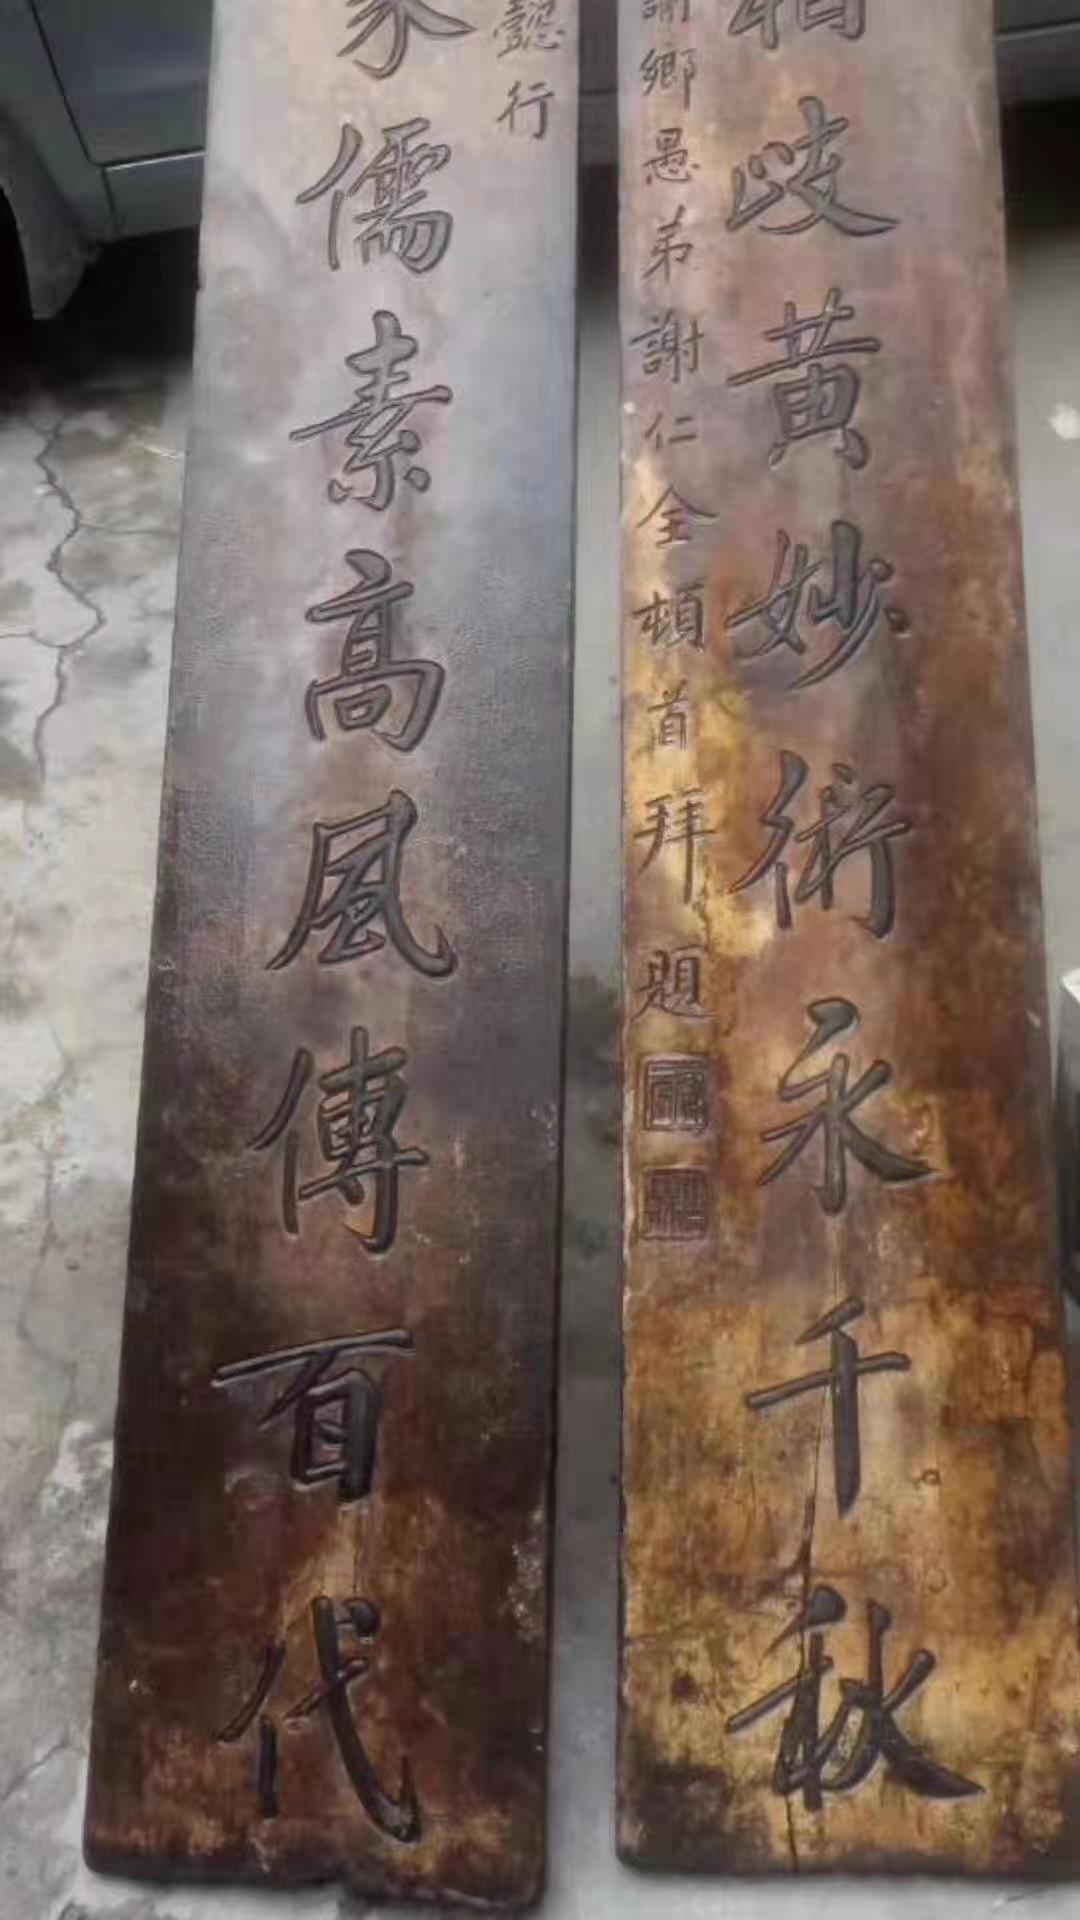 岐黃妙術永千秋
鄉愚弟謝仁全頓首拜題
懿行
儒素高風傳百代